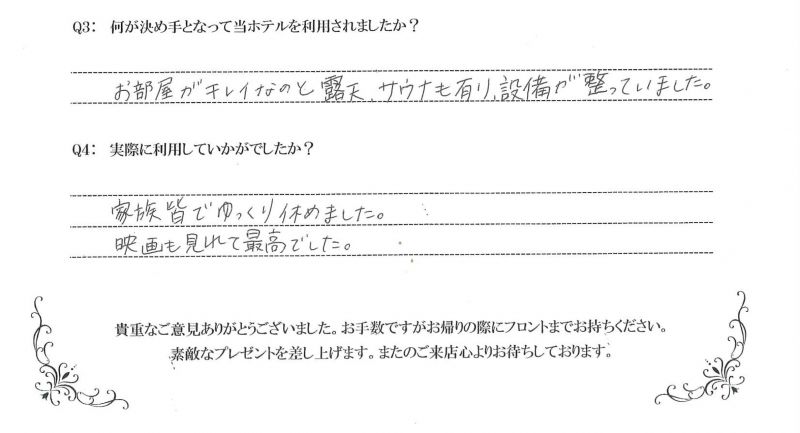 Q3： 何が決め手となって当ホテルを利用されましたか？
お部屋がキレイなのと露天、サウナも有り、設備が整っていました。
Q4： 実際に利用していかがでしたか？
家族皆でゆっくり休めました。
映画も見れて最高でした。
貴重なご意見ありがとうございました。お手数ですがお帰りの際にフロントまでお持ちください。
素敵なプレゼントを差し上げます。またのご来店心よりお待ちしております。